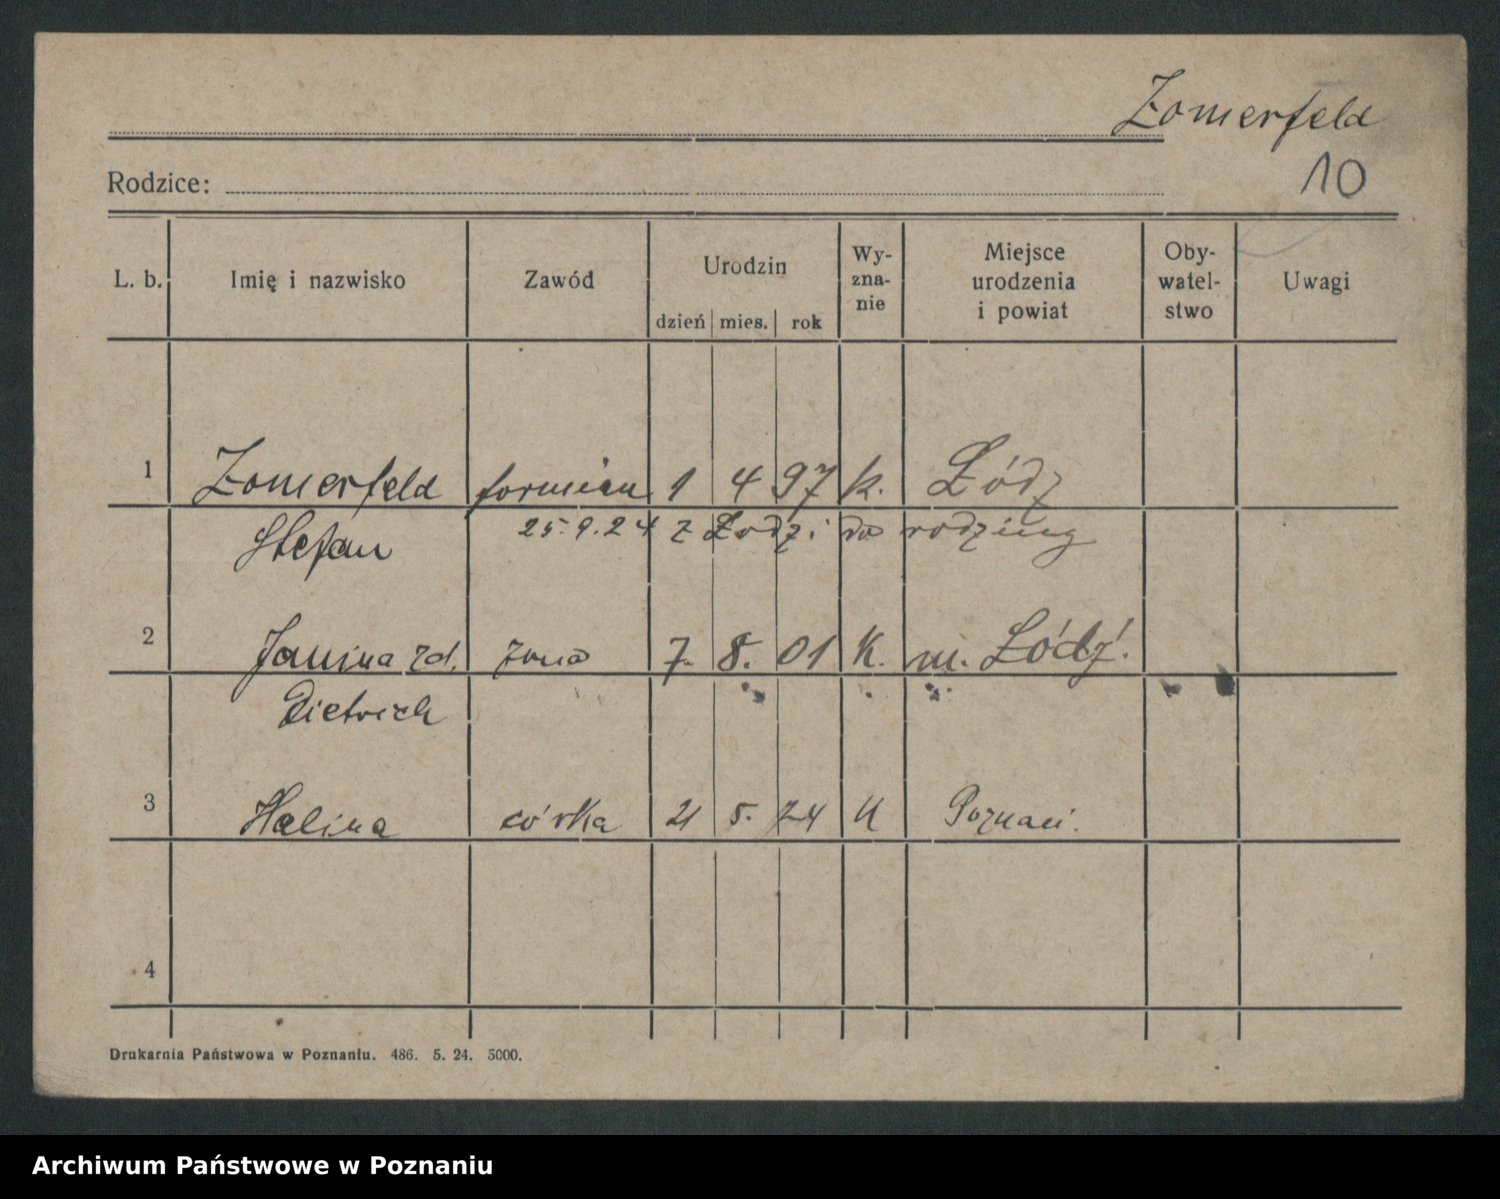 Zomerfeld
Rodzice:
10
L. b. Imię i nazwisko Zawód Urodzin dzień mies. rok Wy-zna-nie Miejsce urodzenia i powiat Oby-watel-stwo Uwagi
1 Zomerfeld formierz 1 4 97 k. Łódź
Stefan 25.9.24 z Łodzi do rodziny
2 Janina zd. żona 7. 8. 01 k. m. Łódź.
Dietrich
3 Halina córka 21 5. 24 k Poznań.
4
Drukarnia Państwowa w Poznaniu. 486. 5. 24. 5000.
Archiwum Państwowe w Poznaniu